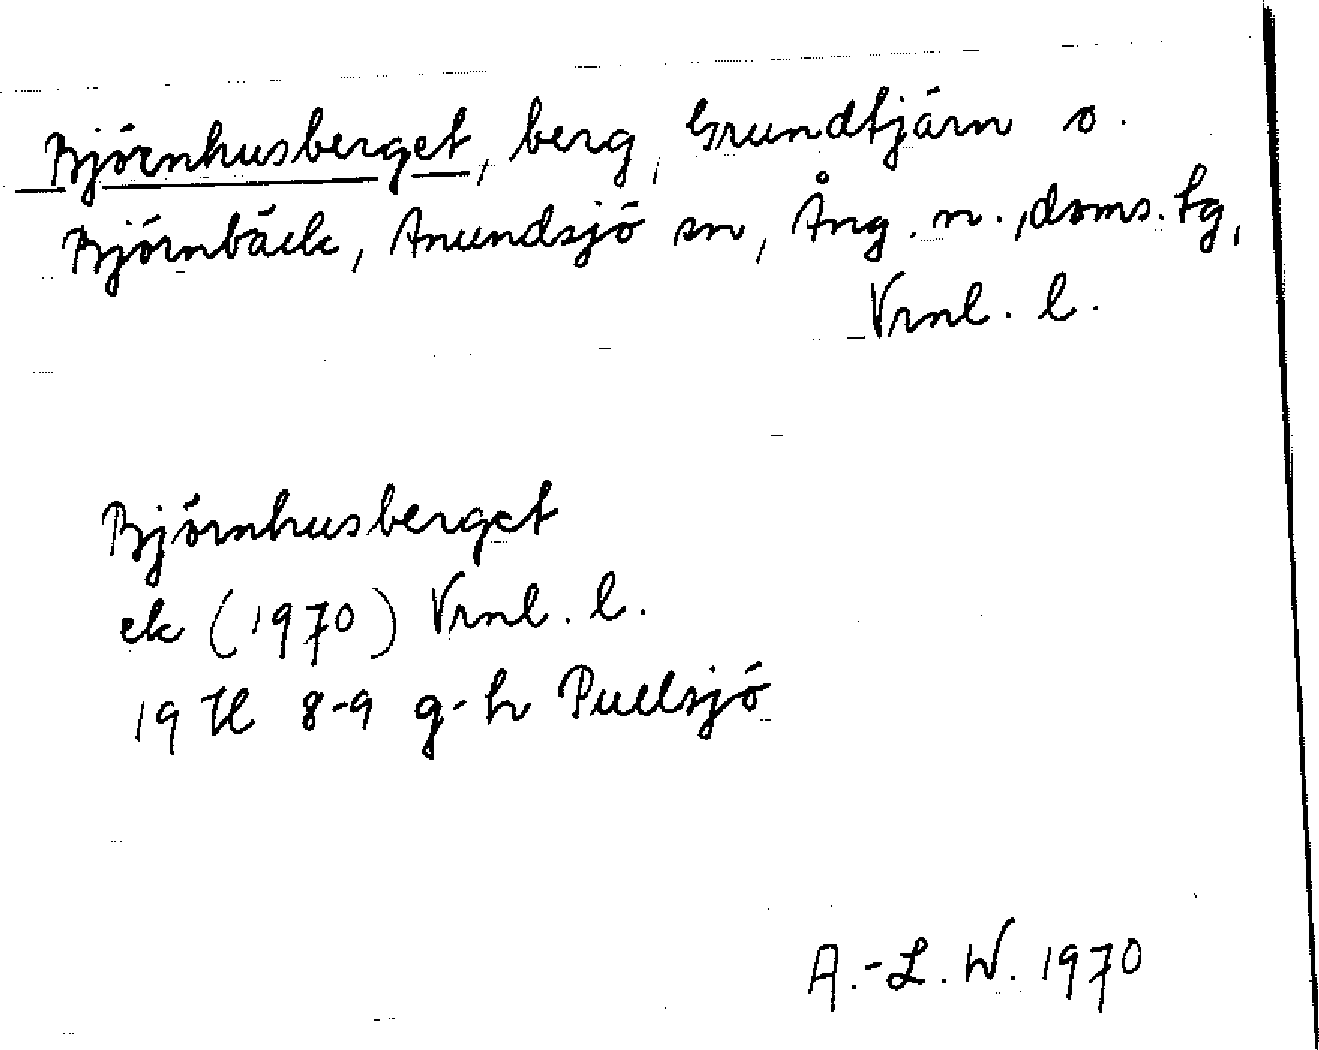 Björnhusberget, berg, Grundtjärn o.
Björnbäck, Anundsjö sn, Ång. n., doms. tg,
Vrnl. l.
Björnhusberget
ek (1970) Vrnl. l.
19 H 8-9 g-h Pullsjö
A.-L. W. 1970